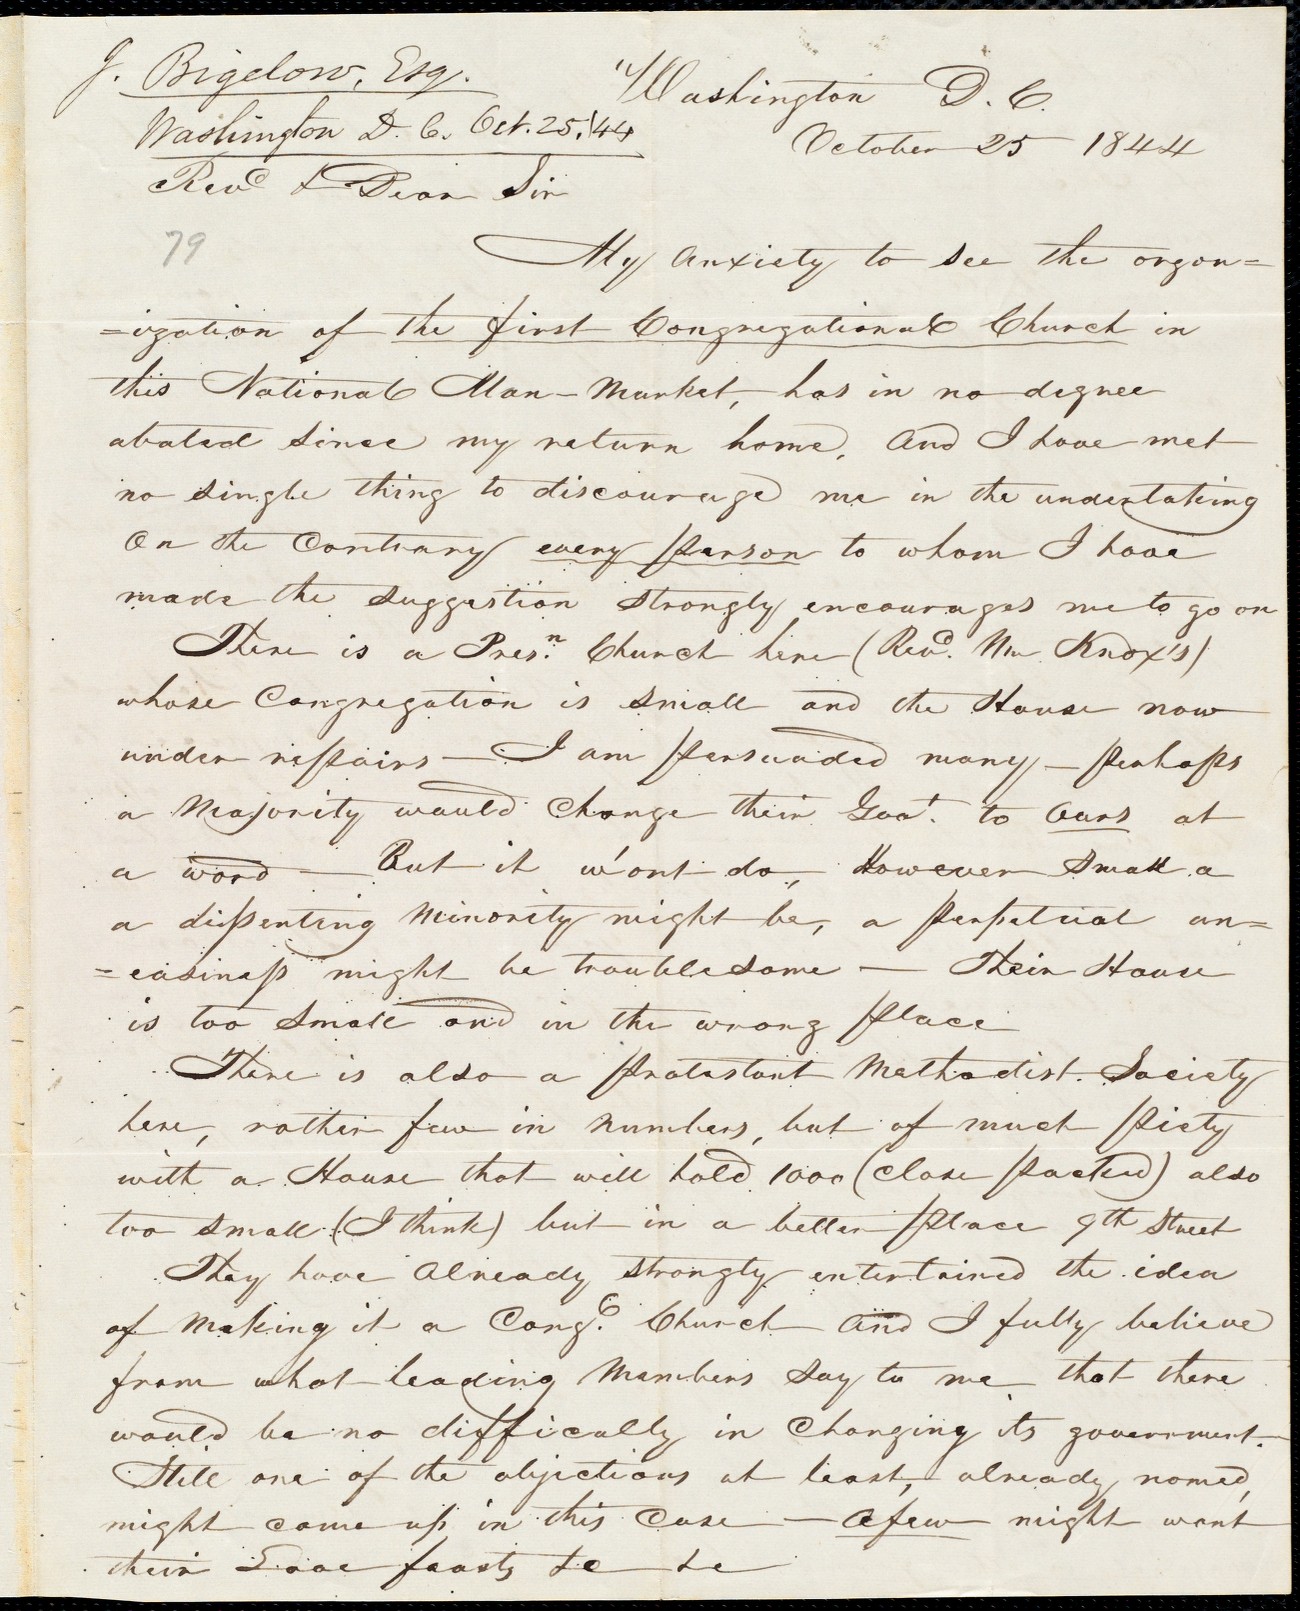 J. Bigelow, Esq.
Washington D. C. Oct. 25, '44
Washington D. C.
October 25 1844
Revd & Dear Sir
79
My anxiety to see the organ=
=ization of the first Congregational Church in
this National Man-Market, has in no degree
abated since my return home, and I have met
no single thing to discourage me in the undertaking
On the Contrary every person to whom I have
made the suggestion strongly encourages me to go on
There is a Presn. Church here (Revd. Mr Knox's)
whose Congregation is small and the House now
under repairs — I am persuaded many — perhaps
a Majority would Change their Govt. to Ours at
a word — But it w'ont do, However Small a
a dissenting Minority might be, a perpetual un=
=easiness might be troublesome — Their House
is too small and in the wrong place
There is also a Protestant Methodist Society
here, rather few in numbers, but of much piety
with a House that will hold 1000 (close packed) also
too small (I think) but in a better place 9th Street
They have already strongly entertained the idea
of making it a Congl. Church and I fully believe
from what leading Members say to me that there
would be no difficulty in Changing its government.
Still one of the objections at least, already named,
might come up in this Case — a few might want
their Love feasts &c &c